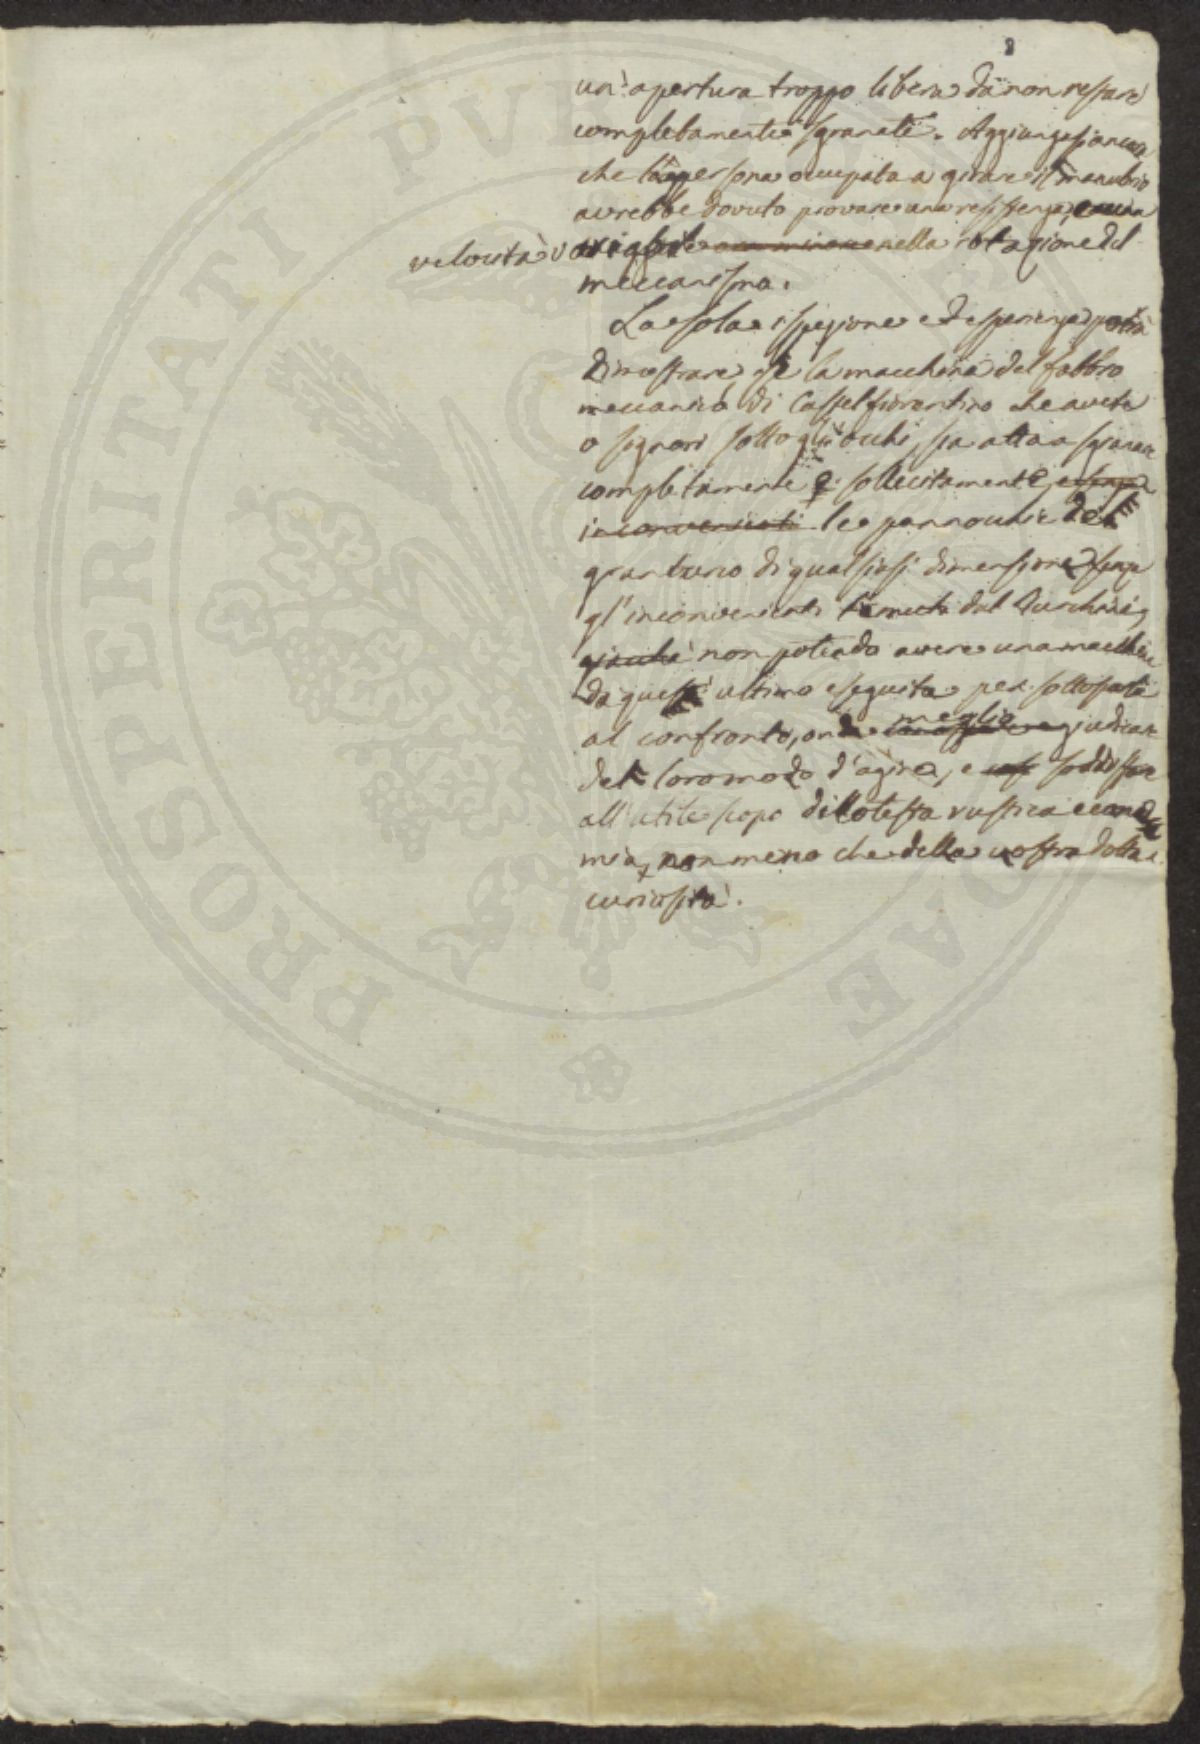 8
un' apertura troppo libera da non restare
completamente sgranate. Aggiungesi ancora
che la persona occupata a girare il manubrio
avrebbe dovuto provare una resistenza, e una
velocità variabile nella rotazione del
meccanismo.
La sola ispezione ed esperienza potrà
dimostrare, se la macchina del fabbro
meccanico di Castelfiorentino che avete
o signori sotto gli occhi, sia atta a sgranare
completamente e sollecitamente, e senza
inconvenienti le pannocchie del
granturco di qualsiasi dimensione senza
gl' inconvenienti temuti dal Turchini,
giacchè non potendo avere una macchina
da quest' ultimo eseguita per sottoporla
al confronto, onde meglio giudicare
del loro modo d'agire, e soddisfare
all' utile scopo di cotesta rustica econo
mia, non meno che della vostra dotta
curiosità.
PROSPERITATI PVBLICAE